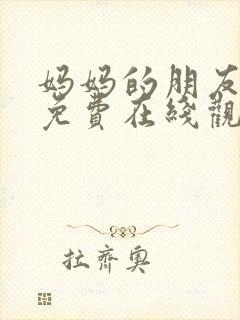 妈妈的朋友
免費在綫觀
拉齊奧